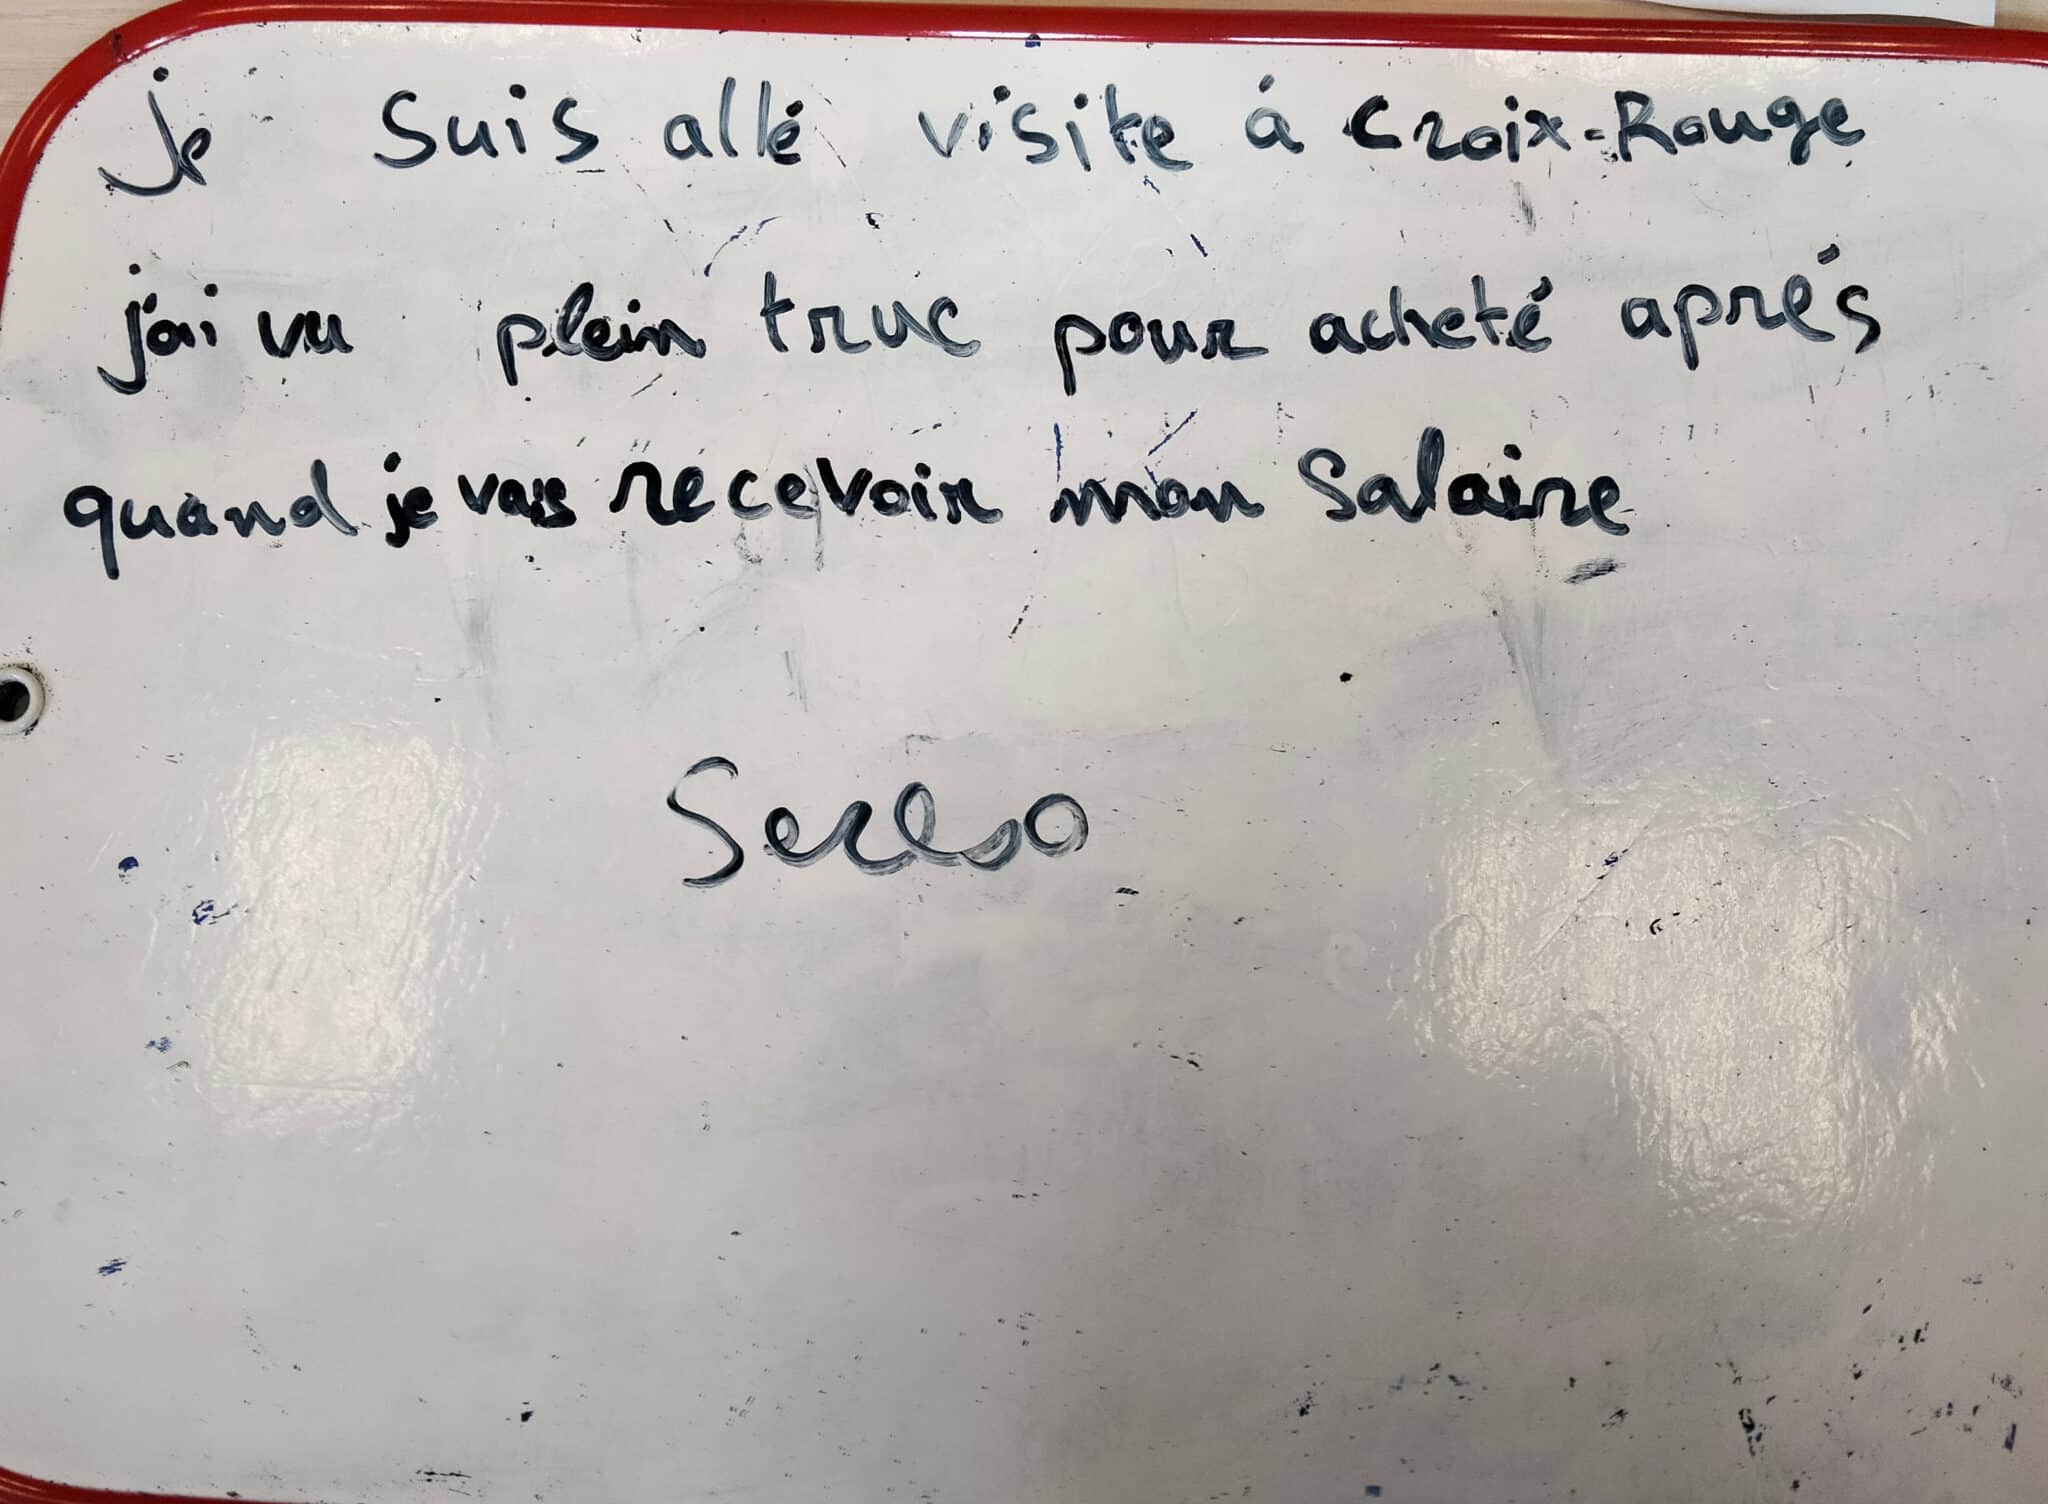 je suis allé visite á croix-Rouge
j'ai vu plein truc pour acheté aprés
quand je vais recevoir mon salaire